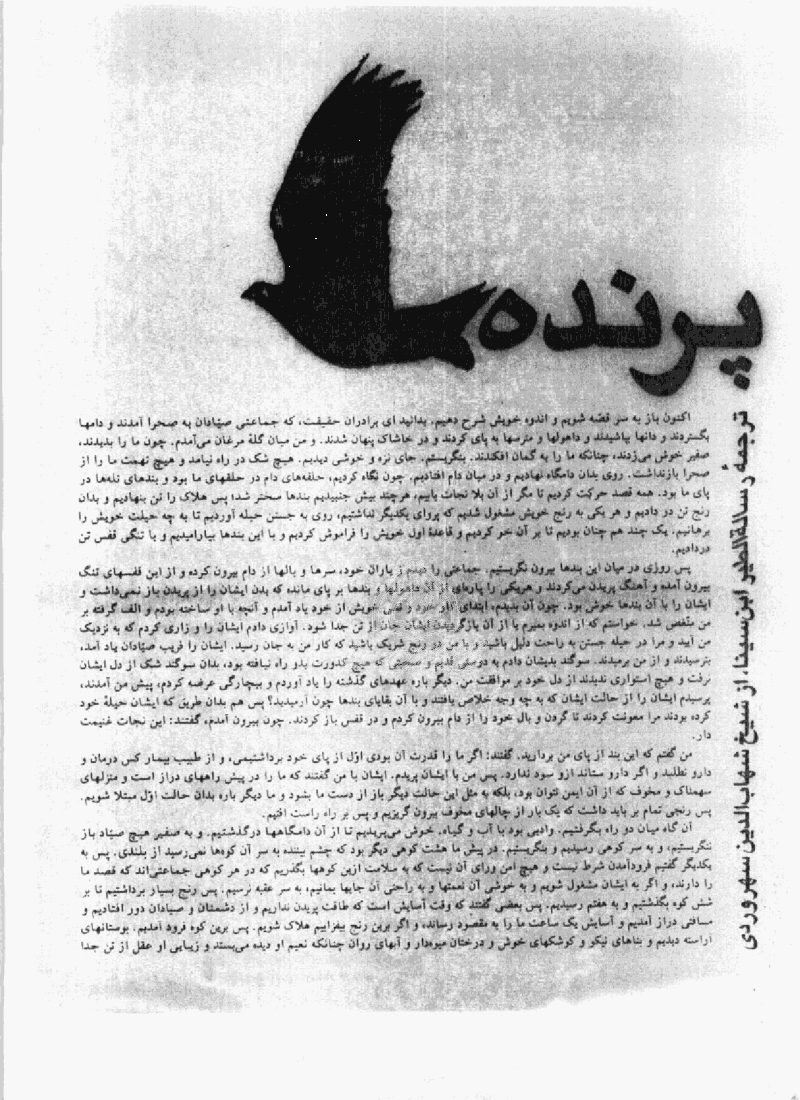 پرنده
ترجمهٔ رسالةالطیر ابن‌سینا، از شیخ شهاب‌الدین سهروردی
اکنون باز به سر قصّه شویم و اندوه خویش شرح دهیم. بدانید ای برادران حقیقت، که جماعتی صیّادان به صحرا آمدند و دامها
بگستردند و دانها بپاشیدند و داهولها و مترسها به پای کردند و در خاشاک پنهان شدند. و من میان گلهٔ مرغان می‌آمدم. چون ما را بدیدند،
صفیر خوش می‌زدند، چنانکه ما را به گمان افکندند. بنگریستم، جای نزه و خوشی دیدیم. هیچ شک در راه نیامد و هیچ تهمت ما را از
صحرا بازنداشت. روی بدان دامگاه نهادیم و در میان دام افتادیم. چون نگاه کردیم، حلقه‌های دام در حلقهای ما بود و بندهای تله‌ها در
پای ما بود. همه قصد حرکت کردیم تا مگر از آن بلا نجات یابیم، هرچند بیش جنبیدیم بندها سختر شد؛ پس هلاک را تن بنهادیم و بدان
رنج تن در دادیم و هر یکی به رنج خویش مشغول شدیم که پروای یکدیگر نداشتیم، روی به جستن حیله آوردیم تا به چه حیلت خویش را
برهانیم. یک چند هم چنان بودیم تا بر آن خو کردیم و قاعدهٔ اول خویش را فراموش کردیم و با این بندها بیارامیدیم و با تنگی قفس تن
دردادیم.
پس روزی در میان این بندها بیرون نگریستیم. جماعتی را دیدم ز یاران خود، سرها و بالها از دام بیرون کرده و از این قفسهای تنگ
بیرون آمده و آهنگ پریدن می‌کردند و هریکی را پاره‌ای از آن داهولها و بندها بر پای مانده که بدن ایشان را از پریدن باز نمی‌داشت و
ایشان را با آن بندها خوش بود. چون آن بدیدم، ابتدای کار خود و قفس خویش از خود یاد آمدم و آنچه با او ساخته بودم و الف گرفته بر
من منّغص شد. خواستم که از اندوه بمیرم یا از آن بازگردیدن ایشان جان از تن جدا شود. آوازی دادم ایشان را و زاری کردم که به نزدیک
من آیید و مرا در حیله جستن به راحت دلیل باشید و با من در رنج شریک باشید که کار من به جان رسید. ایشان را فریب صیّادان یاد آمد،
بترسیدند و از من برمیدند. سوگند بدیشان دادم به دوستی قدیم و صحبتی که هیچ کدورت بدو راه نیافته بود، بدان سوگند شک از دل ایشان
نرفت و هیچ استواری ندیدند از دل خود بر موافقت من. دیگر باره عهدهای گذشته را یاد آوردم و بیچارگی عرضه کردم، پیش من آمدند،
پرسیدم ایشان را از حالت ایشان که به چه وجه خلاص یافتند و با آن بقایای بندها چون آرمیدید؟ پس هم بدان طریق که ایشان حیلهٔ خود
کرده بودند مرا معونت کردند تا گردن و بال خود را از دام بیرون کردم و در قفس باز کردند. چون بیرون آمدم، گفتند: این نجات غنیمت
دار.
من گفتم که این بند از پای من بردارید. گفتند: اگر ما را قدرت آن بودی اوّل از پای خود برداشتیمی، و از طبیب بیمار کس درمان و
دارو نطلبد و اگر دارو ستاند ازو سود ندارد. پس من با ایشان پریدم. ایشان با من گفتند که ما را در پیش راههای دراز است و منزلهای
سهمناک و مخوف که از آن ایمن نتوان بود، بلکه به مثل این حالت دیگر باز از دست ما بشود و ما دیگر باره بدان حالت اوّل مبتلا شویم.
پس رنجی تمام بر باید داشت که یک بار از چالهای مخوف بیرون گریزیم و پس بر راه راست افتیم.
آن گاه میان دو راه بگرفتیم. وادیی بود با آب و گیاه. خوش می‌پریدیم تا از آن دامگاهها درگذشتیم. و به صفیر هیچ صیّاد باز
ننگریستیم، و به سر کوهی رسیدیم و بنگریستیم. در پیش ما هشت کوهی دیگر بود که چشم بیننده به سر آن کوه‌ها نمی‌رسید از بلندی. پس به
یکدیگر گفتیم فرودآمدن شرط نیست و هیچ امن ورای آن نیست که به سلامت ازین کوهها بگذریم که در هر کوهی جماعتی‌اند که قصد ما
را دارند، و اگر به ایشان مشغول شویم و به خوشی آن نعمتها و به راحتی آن جایها بمانیم، به سر عقبه نرسیم. پس رنج بسیار برداشتیم تا بر
شش کوه بگذشتیم و به هفتم رسیدیم. پس بعضی گفتند که وقت آسایش است که طاقت پریدن نداریم و از دشمنان و صیادان دور افتادیم و
مسافتی دراز آمدیم و آسایش یک ساعت ما را به مقصود رساند، و اگر برین رنج بیفزاییم هلاک شویم. پس برین کوه فرود آمدیم. بوستانهای
آراسته دیدیم و بناهای نیکو و کوشکهای خوش و درختان میوه‌دار و آبهای روان چنانکه نعیم او دیده می‌بستد و زیبایی او عقل از تن جدا